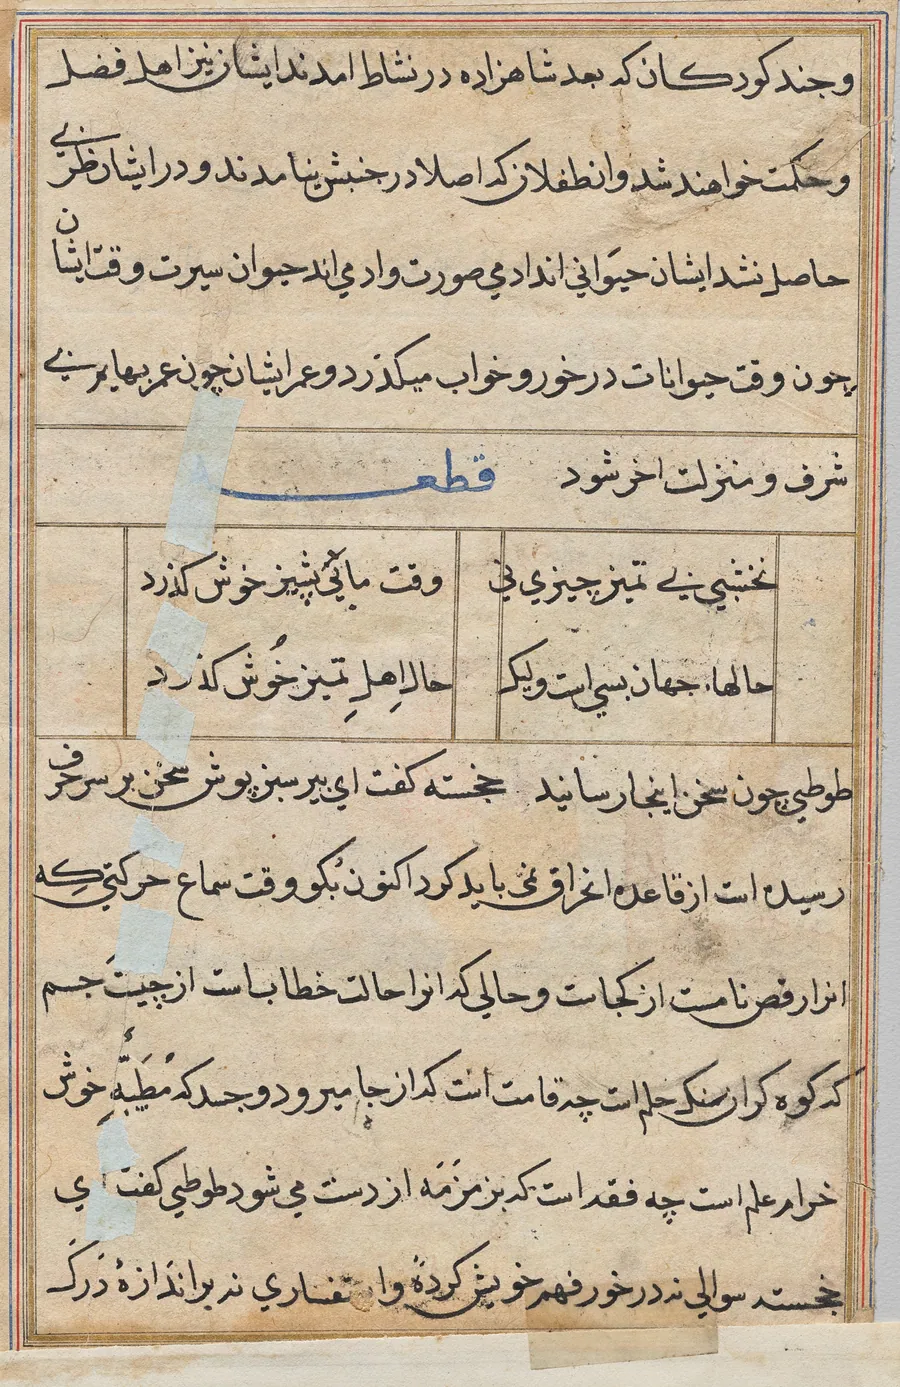 و جند کودکان که بعد شاهزاده در نشاط امدند ایشان نیز اهل فضل
و حکمت خواهند شد و انطفلان که اصلا در جنبش نیامدند و در ایشان طربی
حاصل نشد ایشان حیوانی اند ادمی صورت و ادمی اند حیوان سیرت وقت ایشان
چون وقت حیوانات در خور و خواب میکذرد و عمر ایشان چون عمر بهایم بی
شرف و منزلت اخر شود قطعه
نخشبی بی تمیز چیزی نی وقت با تمیز خوش کذرد
حالها جهان بسی است ولیک حال اهل تمیز خوش کذرد
طوطی چون سخن اینجا رسانید خجسته کفت ای پیر سبز پوش سخن بر سر حرف
رسیده است از قاعده انحراق نمی باید کرد اکنون بکو وقت سماع حرکتی که
انرا رقص نامست از کجاست و حالی که انرا حالت خطاب است از چیست جسم
که کوه کران سنک حلم است چه قامت است که از جا میرود و جسد که خوش
خرام علم است چه فقد است که بزمزمه از دست می شود طوطی کفت ای
خجسته سوالی نه در خور فهم خویش کرده و استفساری نه بر اندازهٔ درک